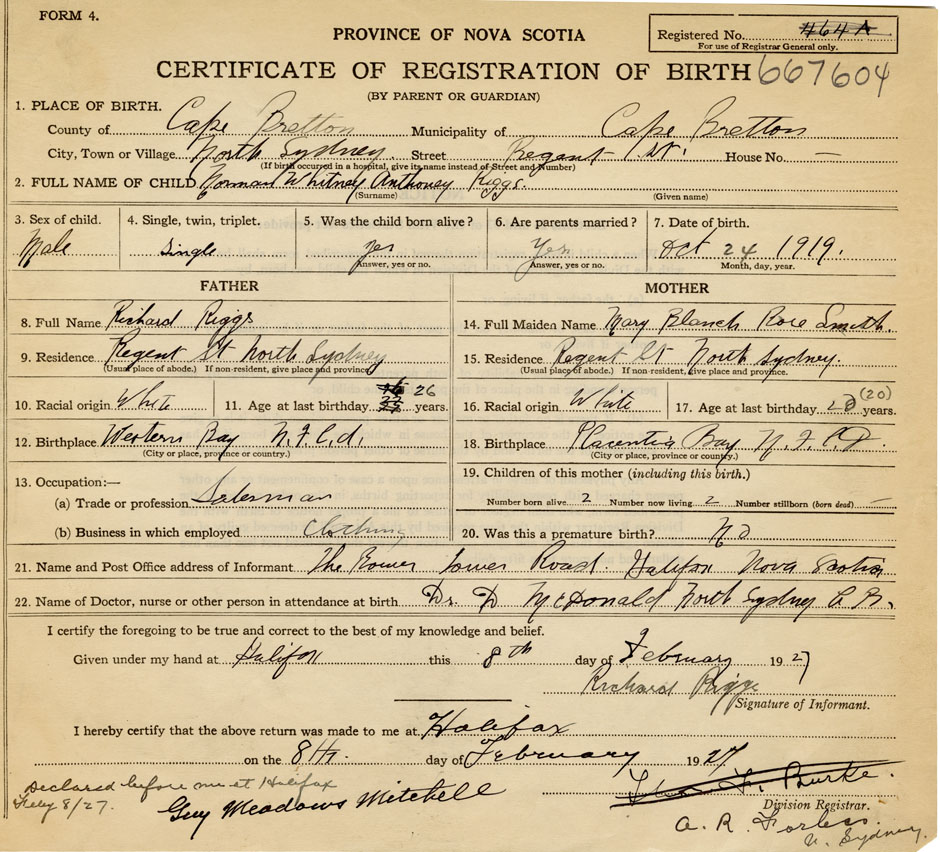 FORM 4.
PROVINCE OF NOVA SCOTIA
Registered No. 464 A
For use of Registrar General only.
CERTIFICATE OF REGISTRATION OF BIRTH 667604
(BY PARENT OR GUARDIAN)
1. PLACE OF BIRTH.
County of Cape Bretton Municipality of Cape Bretton
City, Town or Village North Sydney. Street Regent St. House No. —
(If birth occurred in a hospital, give its name instead of Street and Number)
2. FULL NAME OF CHILD Norman Whitney Anthoney Riggs.
(Surname) (Given name)
3. Sex of child. 4. Single, twin, triplet. 5. Was the child born alive? 6. Are parents married? 7. Date of birth.
Male Single Yes Yes Oct 24 1919.
Answer, yes or no. Answer, yes or no. Month, day, year.
FATHER MOTHER
8. Full Name Richard Riggs 14. Full Maiden Name Mary Blanch Rose Smith.
9. Residence Regent St North Sydney 15. Residence Regent St North Sydney.
(Usual place of abode.) If non-resident, give place and province. (Usual place of abode.) If non-resident, give place and province.
10. Racial origin White 11. Age at last birthday 26 years. 16. Racial origin White 17. Age at last birthday (20) years.
12. Birthplace Western Bay N.F.L.d. 18. Birthplace Placentia Bay N.F.L.D.
(City or place, province or country.) (City or place, province or country.)
13. Occupation:— 19. Children of this mother (including this birth.)
(a) Trade or profession Salesman Number born alive 2 Number now living 2 Number stillborn (born dead) —
(b) Business in which employed Clothing 20. Was this a premature birth? No
21. Name and Post Office address of Informant The Tower Road. Halifax Nova Scotia
22. Name of Doctor, nurse or other person in attendance at birth Dr. D McDonald North Sydney C.B.
I certify the foregoing to be true and correct to the best of my knowledge and belief.
Given under my hand at Halifax this 8th day of February 1927
Richard Riggs
Signature of Informant.
I hereby certify that the above return was made to me at Halifax
on the 8th. day of February 1927
Declared before me at Halifax
Feby 8/27.
Guy Meadows Mitchell
Burke.
Division Registrar.
A. R. Forbess.
N. Sydney.